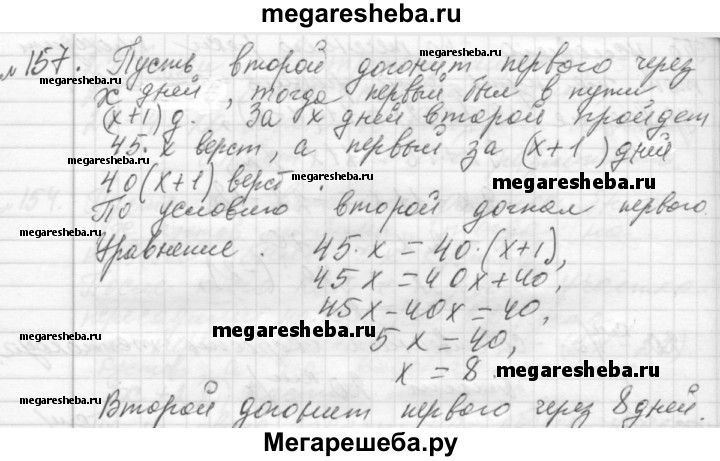 megaresheba.ru
№157. Пусть второй догонит первого через
megaresheba.ru
megaresheba.ru
х дней, тогда первый был в пути
(х+1) д. За х дней второй пройдет
45·х верст, а первый за (х+1) дней
megaresheba.ru
megaresheba.ru
40(х+1) верст.
По условию второй догнал первого.
Уравнение. 45·х = 40·(х+1),
45х = 40х+40,
45х-40х = 40,
megaresheba.ru
megaresheba.ru
megaresheba.ru
5х = 40,
х = 8
megaresheba.ru
megaresheba.ru
Второй догонит первого через 8 дней.
Мегарешеба.ру